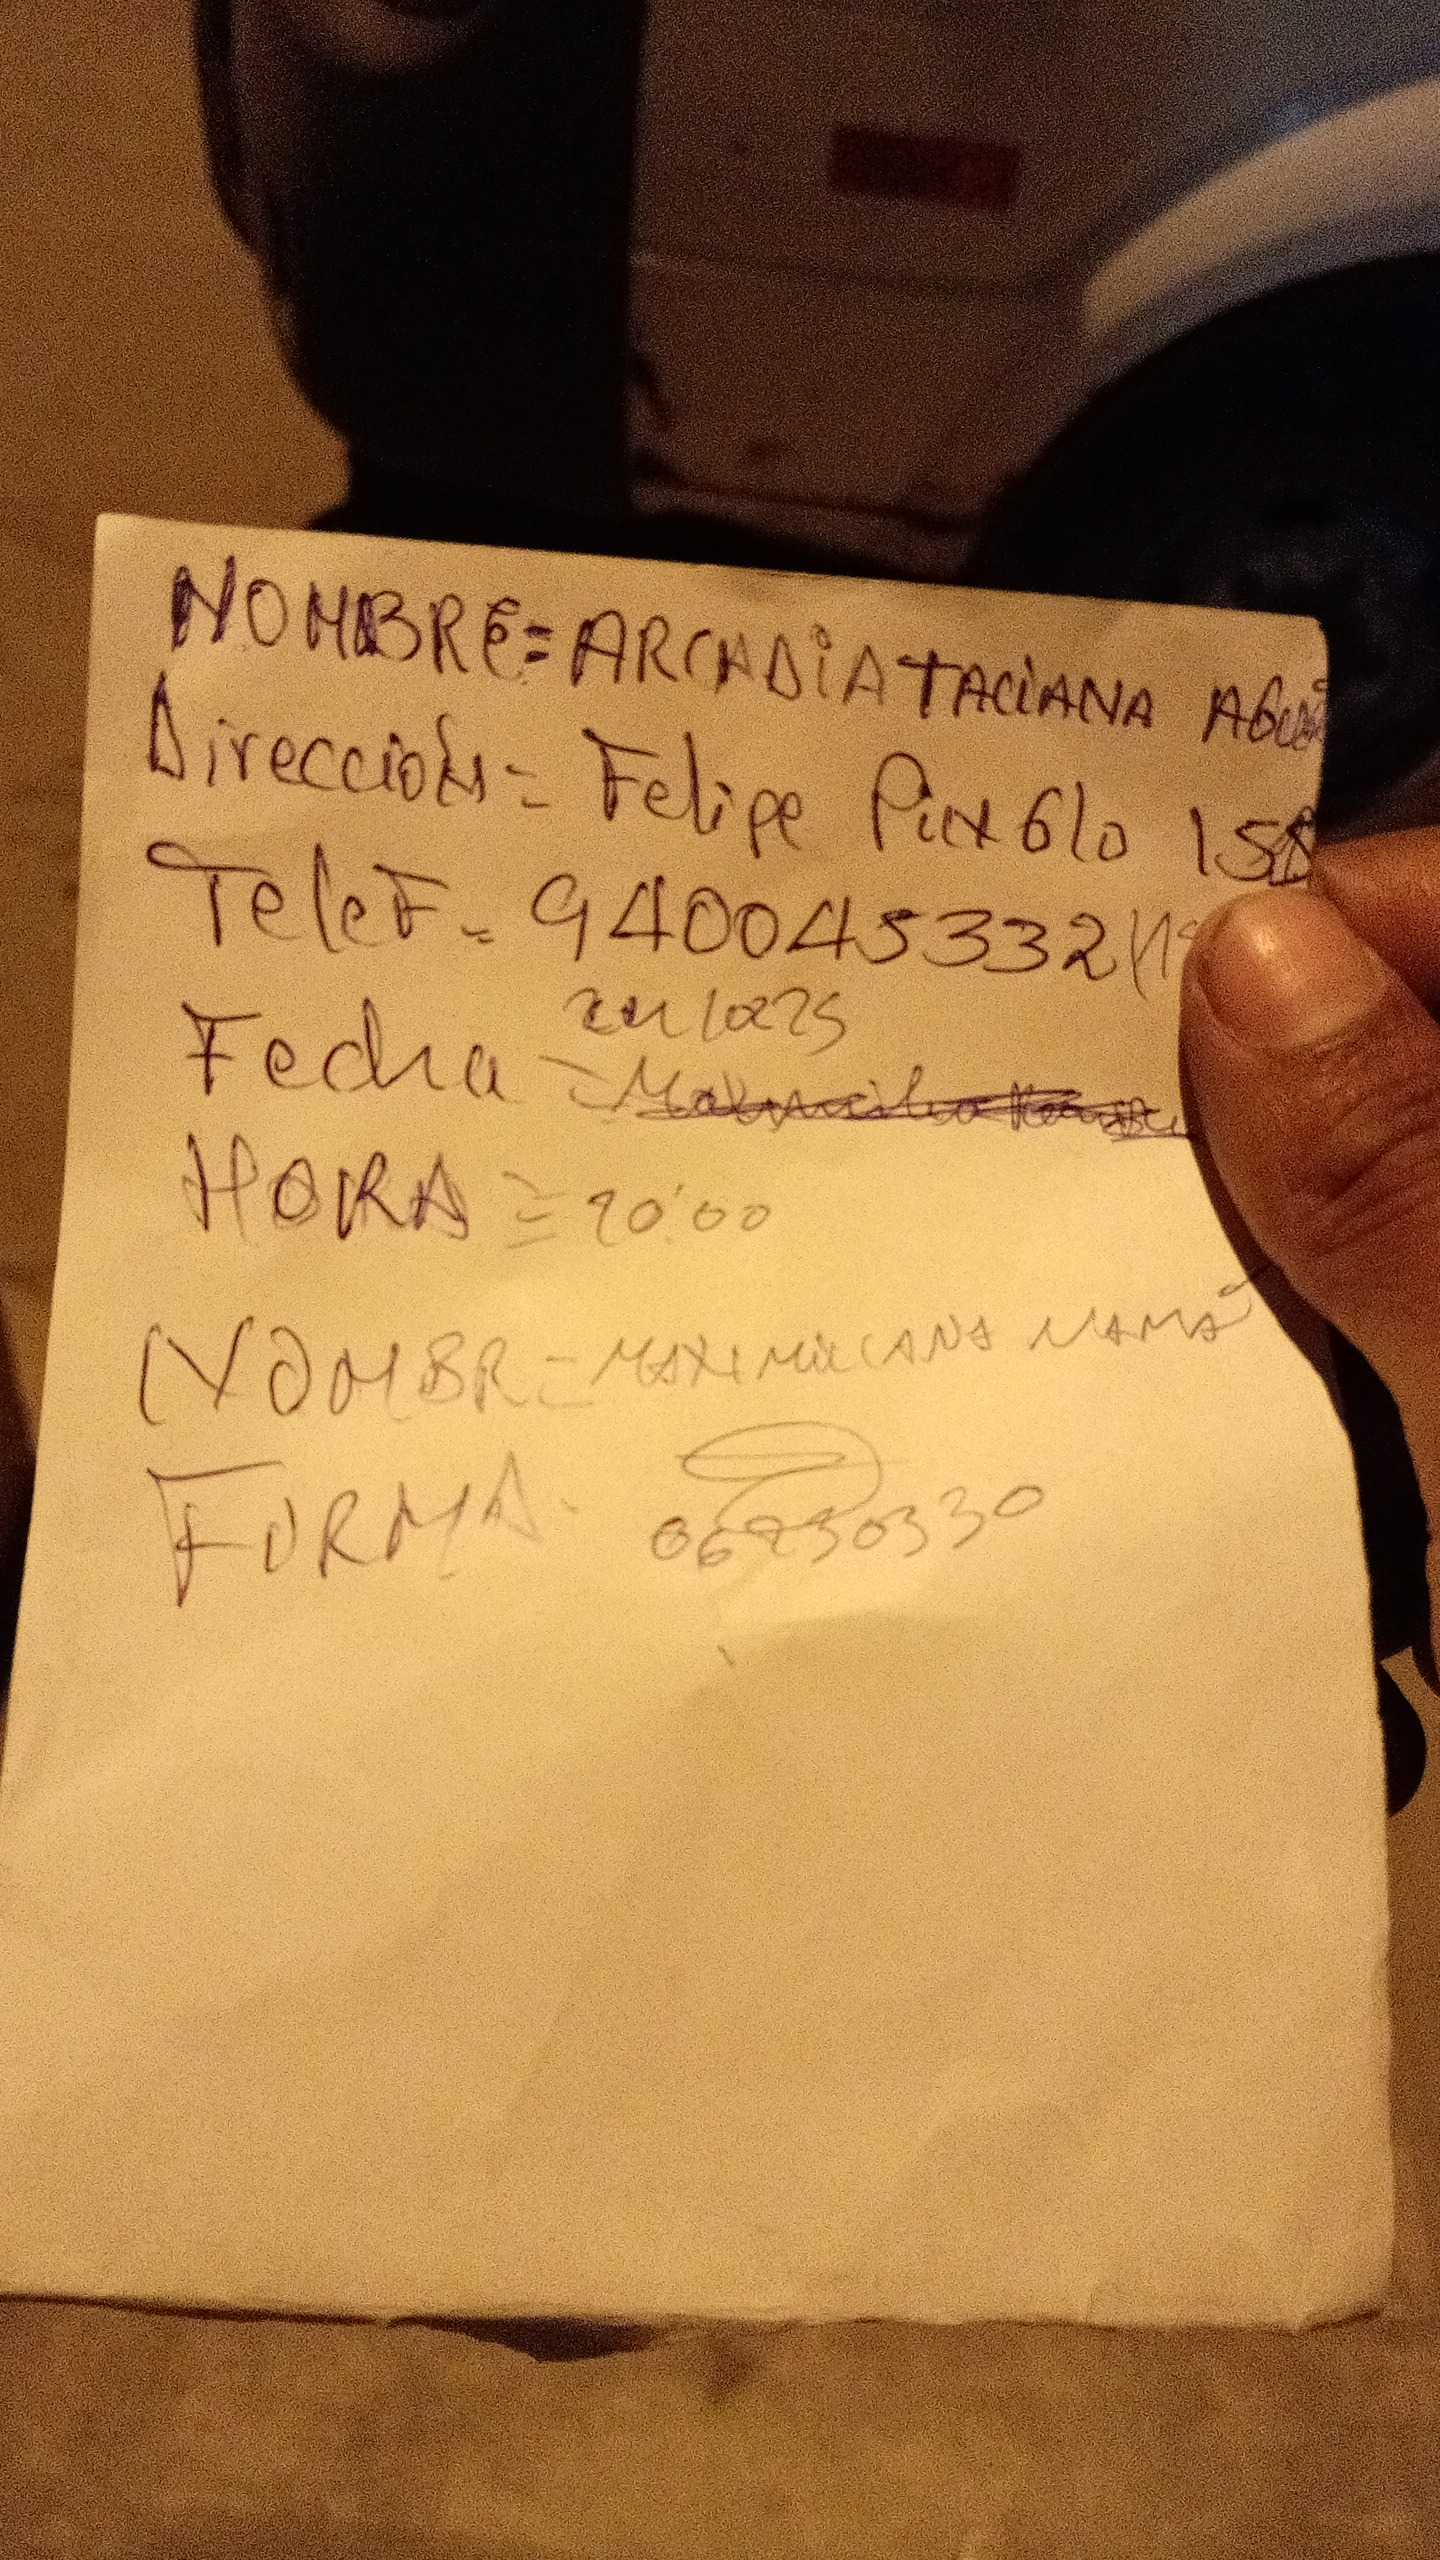 NOMBRE = ARCADIA TACIANA
Dirección = Felipe Pinglo 158
Telef = 940045332
Fecha =
HORA = 20:00
NOMBR = MAXIMILIANA MAMÁ
FIRMA
06730330